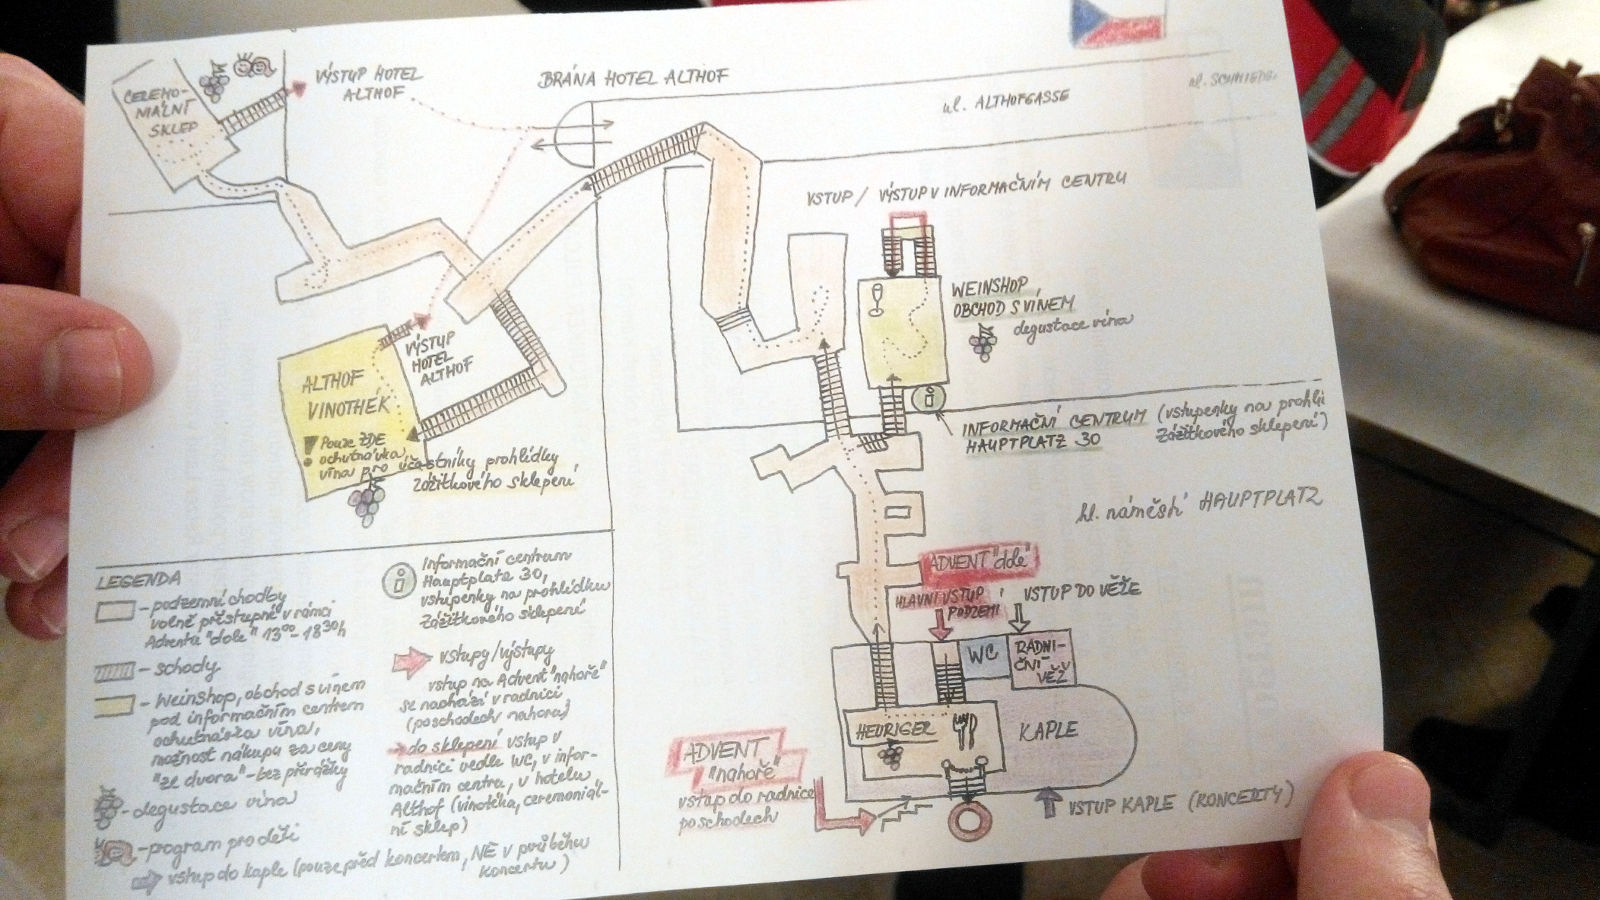 CEREMO-
NIÁLNÍ
SKLEP
VÝSTUP HOTEL
ALTHOF
BRÁNA HOTEL ALTHOF
ul. ALTHOFGASSE
VSTUP / VÝSTUP V INFORMAČNÍM CENTRU
WEINSHOP
OBCHOD S VÍNEM
degustace vína
VÝSTUP
HOTEL
ALTHOF
ALTHOF
VINOTHEK
! Pouze ZDE
ochutnávka
vína pro účastníky prohlídky
Zážitkového sklepení
i
INFORMAČNÍ CENTRUM (vstupenky na prohlí
HAUPTPLATZ 30 Zážitkového sklepení)
hl. náměstí HAUPTPLATZ
ADVENT "dole"
HLAVNÍ VSTUP
PODZEMÍ
VSTUP DO VĚŽE
WC
RADNI-
ČNÍ
VĚŽ
HEURIGER
KAPLE
ADVENT
"nahoře"
vstup do radnice
po schodech
VSTUP KAPLE (KONCERTY)
LEGENDA
- podzemní chodby
volně přístupné v rámci
Adventu "dole" 13⁰⁰- 18³⁰h
- schody
- Weinshop, obchod s vínem
pod informačním centrem
ochutnávka vína,
možnost nákupu za ceny
"ze dvora" - bez přirážky
- degustace vína
- program pro děti
vstup do kaple (pouze před koncertem, NE v průběhu
koncertu)
i
Informační centrum
Hauptplatz 30,
vstupenky na prohlídku
Zážitkového sklepení
vstupy/výstupy
vstup na Advent "nahoře"
se nachází v radnici
(po schodech nahoru)
do sklepení vstup v
radnici vedle WC, v infor-
mačním centru, v hotelu
Althof (vinotéka, ceremoniál-
ní sklep)